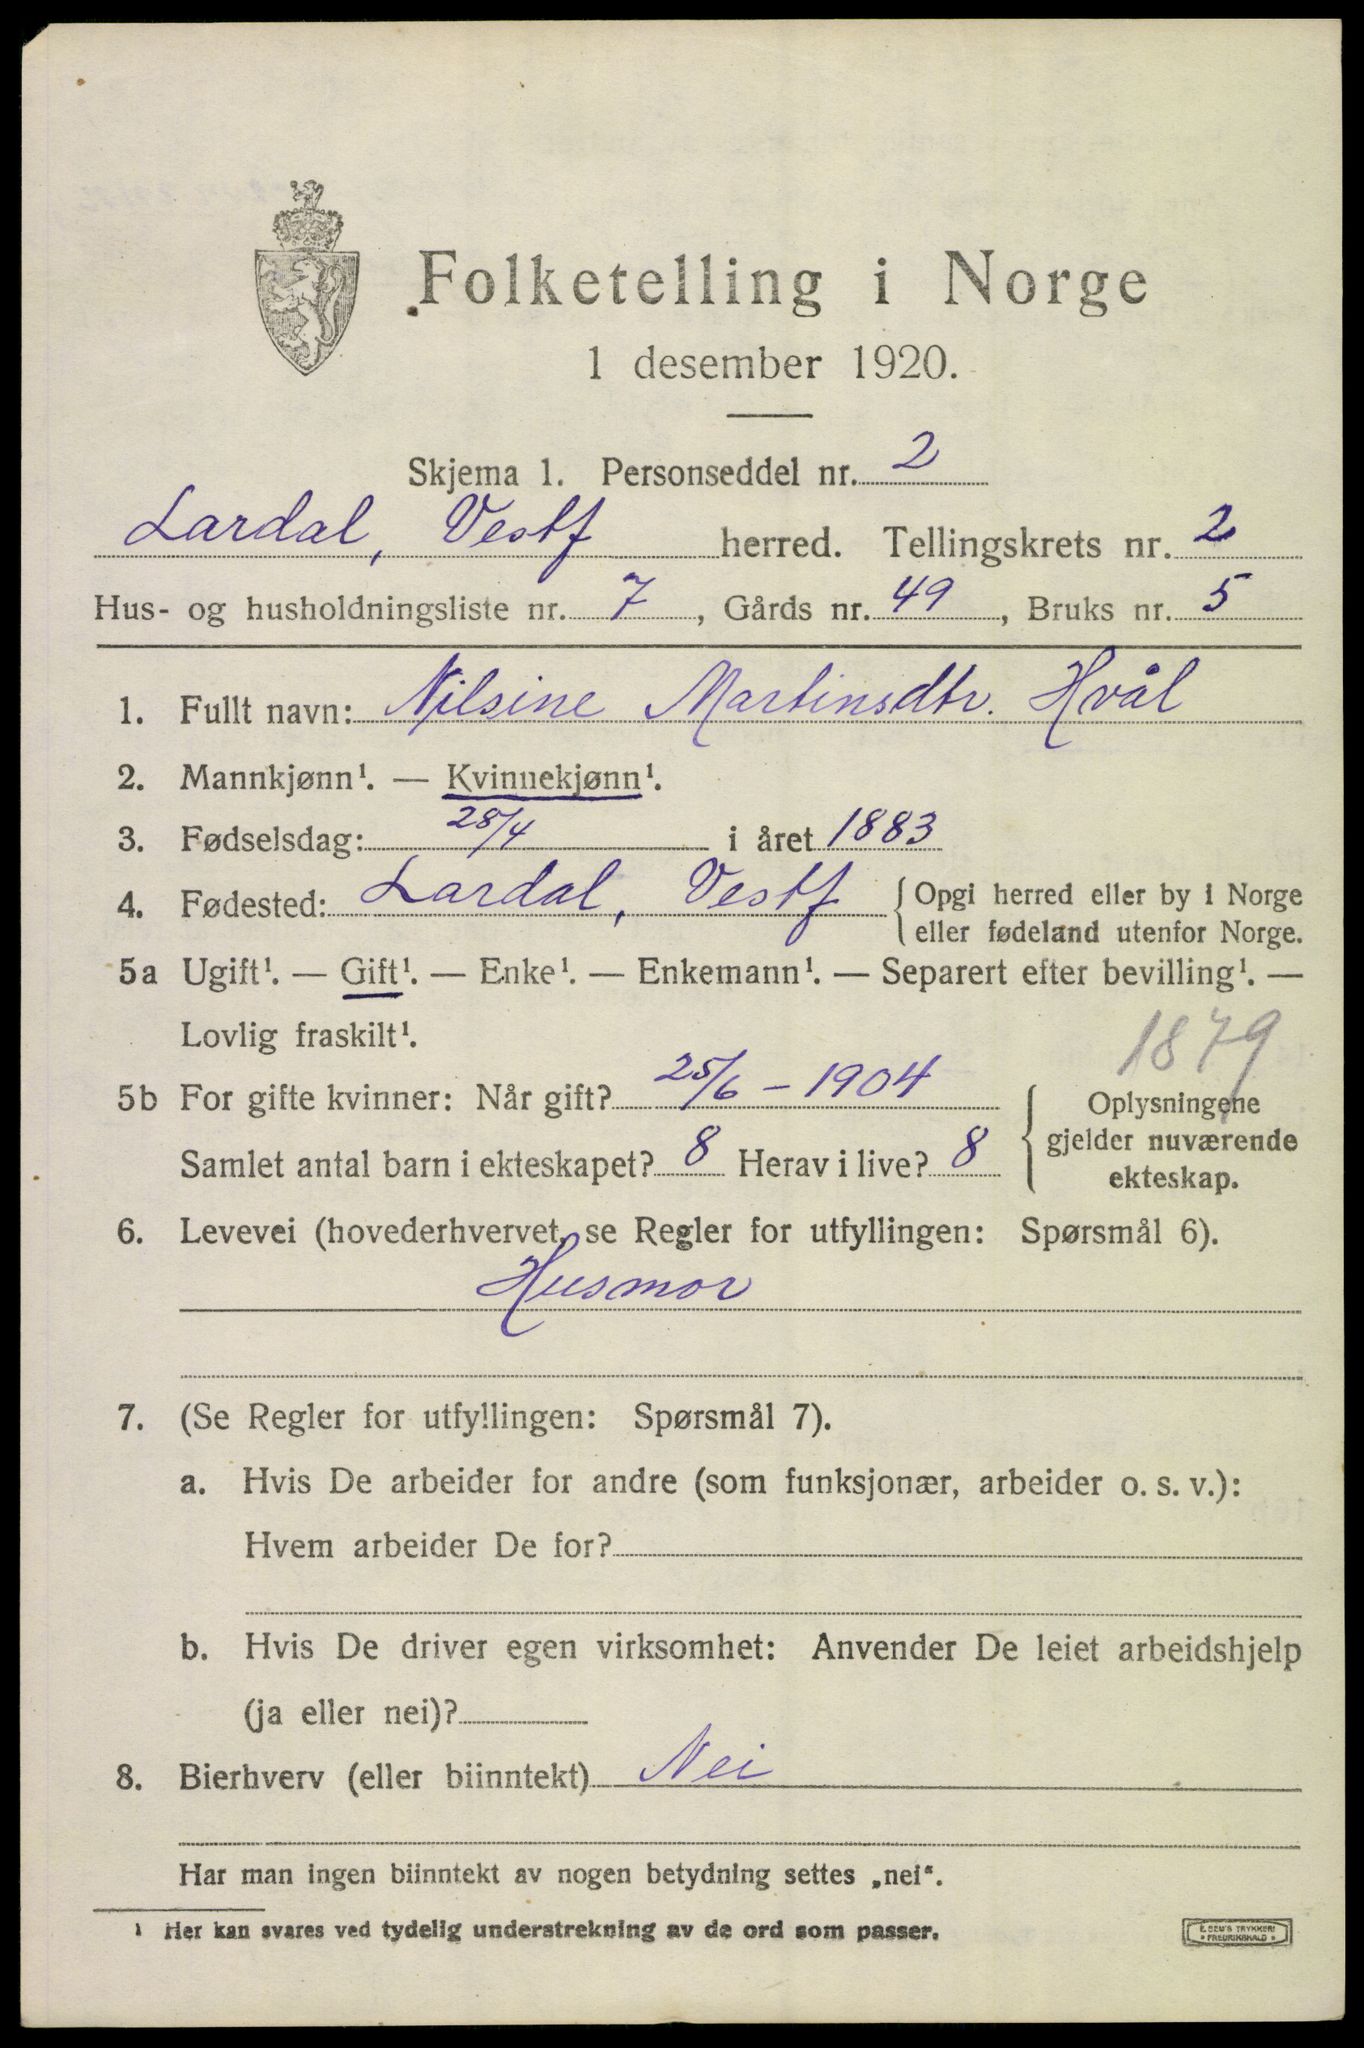 Folketelling i Norge
1 desember 1920.
Skjema 1. Personseddel nr. 2
Lardal, Vestf herred. Tellingskrets nr. 2
Hus- og husholdningsliste nr. 7, Gårds nr. 49, Bruks nr. 5
1. Fullt navn: Nilsine Martinsdtr. Hvål
2. Mannkjønn¹. — Kvinnekjønn¹.
3. Fødselsdag: 28/4 i året 1883
4. Fødested: Lardal, Vestf { Opgi herred eller by i Norge
eller fødeland utenfor Norge.
5a Ugift¹. — Gift¹. — Enke¹. — Enkemann¹. — Separert efter bevilling¹. —
Lovlig fraskilt¹.
1879
5b For gifte kvinner: Når gift? 25/6 – 1904
Samlet antal barn i ekteskapet? 8 Herav i live? 8
{ Oplysningene
gjelder nuværende
ekteskap.
6. Levevei (hovederhvervet, se Regler for utfyllingen: Spørsmål 6).
Husmor
7. (Se Regler for utfyllingen: Spørsmål 7).
a. Hvis De arbeider for andre (som funksjonær, arbeider o. s. v.):
Hvem arbeider De for?
b. Hvis De driver egen virksomhet: Anvender De leiet arbeidshjelp
(ja eller nei)?
8. Bierhverv (eller biinntekt) Nei
Har man ingen biinntekt av nogen betydning settes „nei“.
¹ Her kan svares ved tydelig understrekning av de ord som passer.
E. SEM'S TRYKKERI
• FREDRIKSHALD •